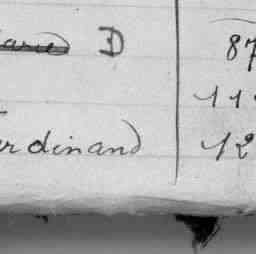 arie D 87
11
erdinand 12